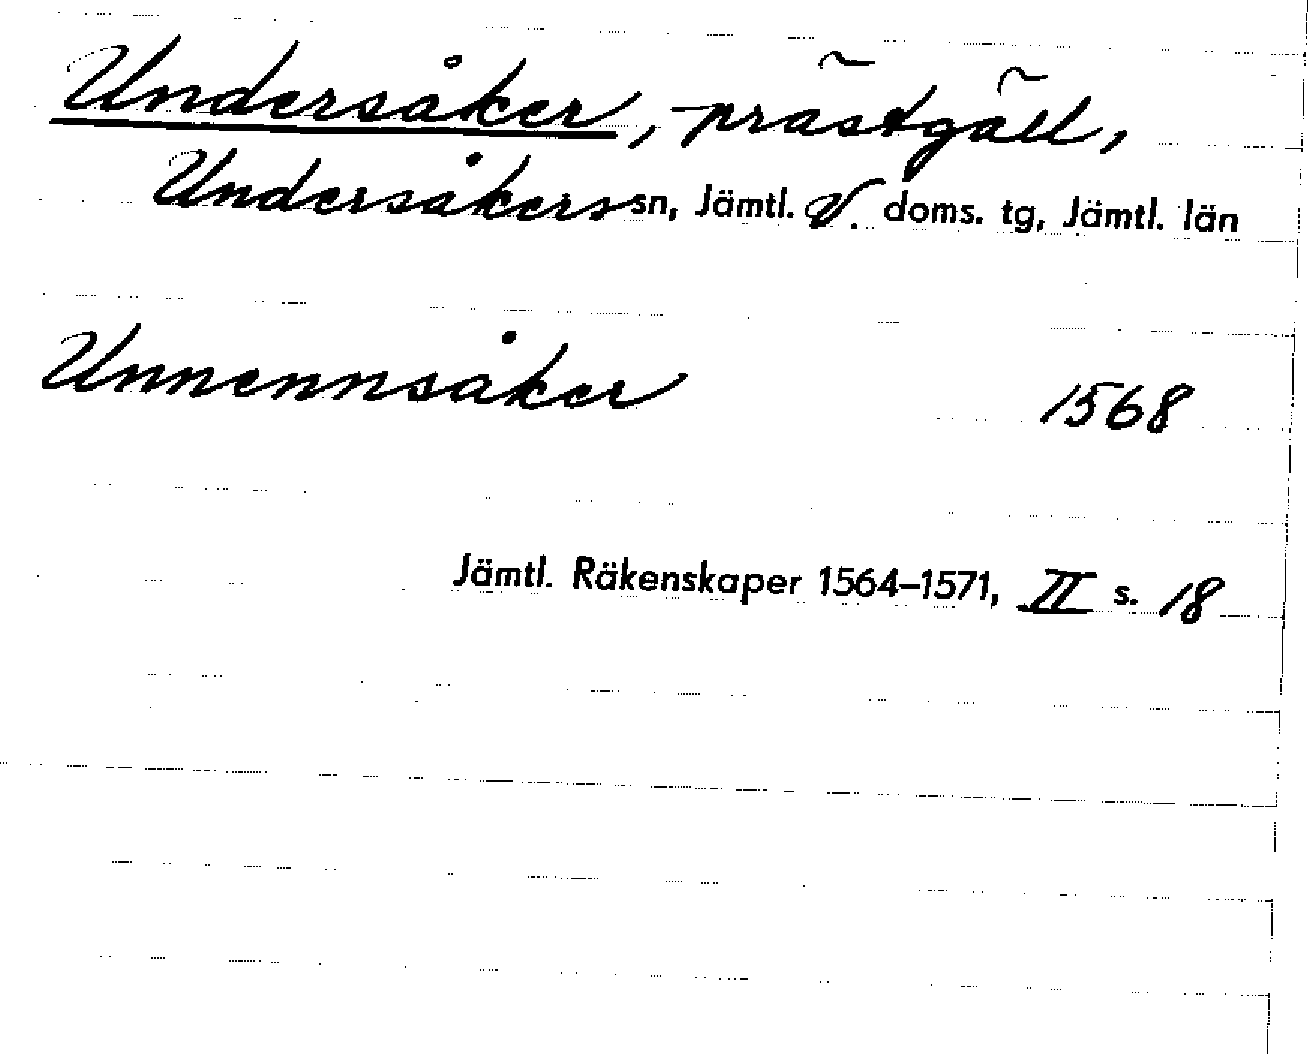 Undersåker, prästgäll,
Undersåkers sn, Jämtl. V. doms. tg, Jämtl. län
Unnennsåker 1568
Jämtl. Räkenskaper 1564–1571, II s. 18